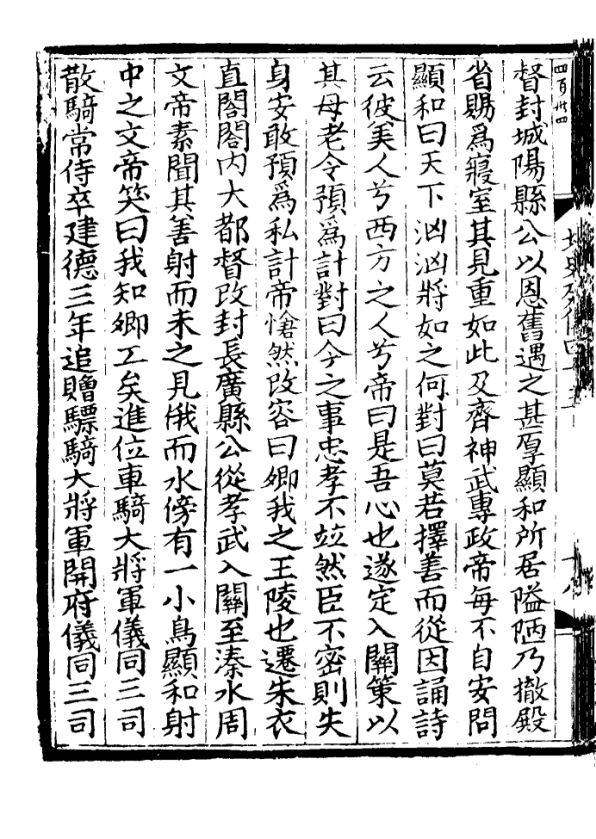 四百卅四
督封城陽縣公以恩舊遇之甚厚顯和所居隘陋乃撤殿
省賜爲寢室其見重如此及齊神武專政帝每不自安問
顯和曰天下洶洶將如之何對曰莫若擇善而從因誦詩
云彼美人兮西方之人兮帝曰是吾心也遂定入關策以
其母老令預爲計對曰今之事忠孝不並然臣不密則失
身安敢預爲私計帝愴然改容曰卿我之王陵也遷朱衣
直閤閤内大都督改封長廣縣公從孝武入關至溱水周
文帝素聞其善射而未之見俄而水傍有一小鳥顯和射
中之文帝笑曰我知卿工矣進位車騎大將軍儀同三司
散騎常侍卒建德三年追贈驃騎大將軍開府儀同三司